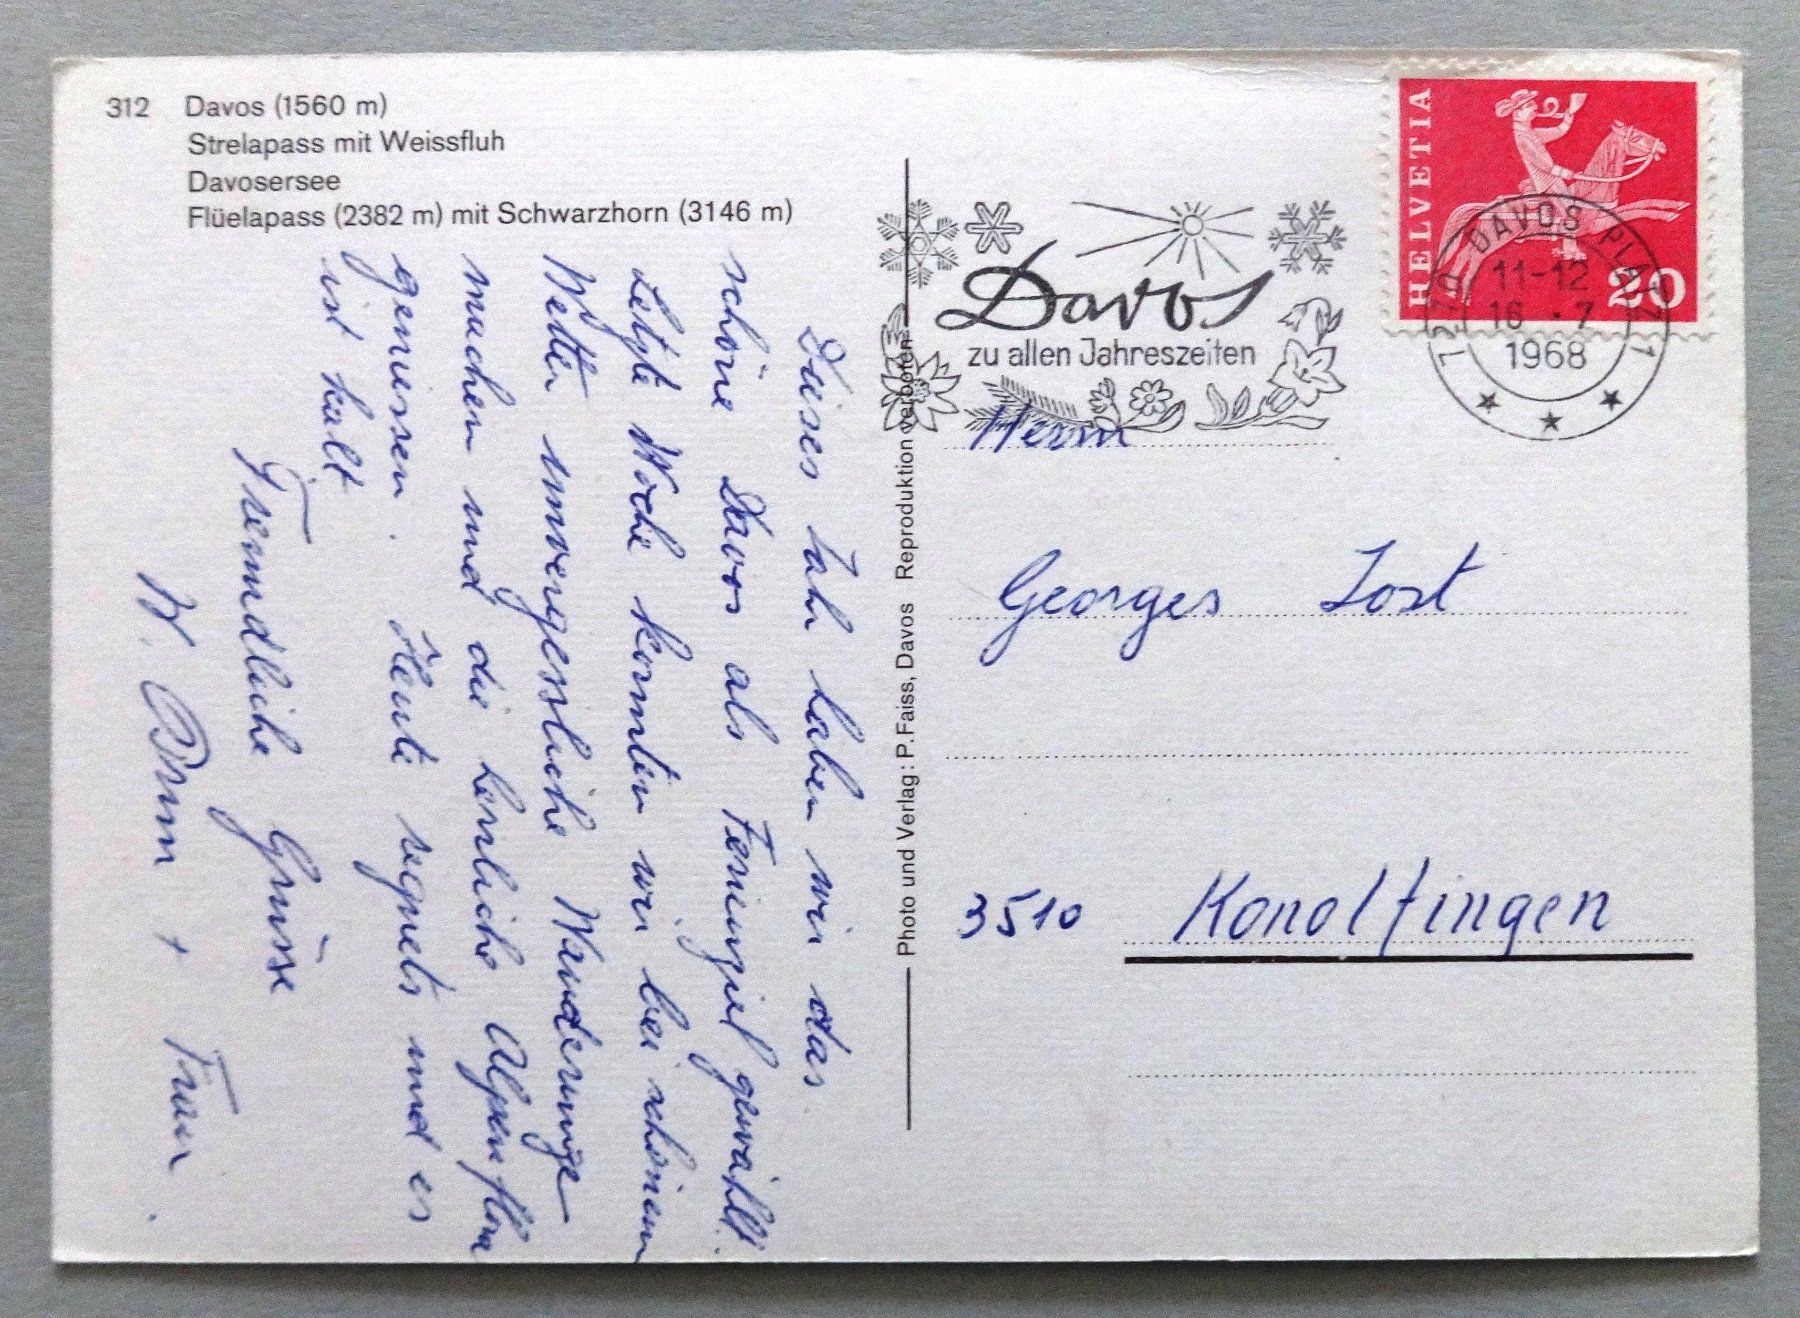 312 Davos (1560 m)
Strelapass mit Weissfluh
Davosersee
Flüelapass (2382 m) mit Schwarzhorn (3146 m)
Dieses Jahr haben wir das
schöne Davos als Ferienziel gewählt.
Letzte Woche konnten wir bei schönem
Wetter unvergessliche Wanderunge
machen und die herrliche Alpenflora
geniessen. Heute regnets und es
ist kalt
Freundliche Grüsse
W. + Frau
Photo und Verlag: P. Faiss, Davos Reproduktion verboten
Davos
zu allen Jahreszeiten
HELVETIA
20
7270 DAVOS PLATZ 1
11-12
16.-7
1968
Herrn
Georges Jost
3510 Konolfingen